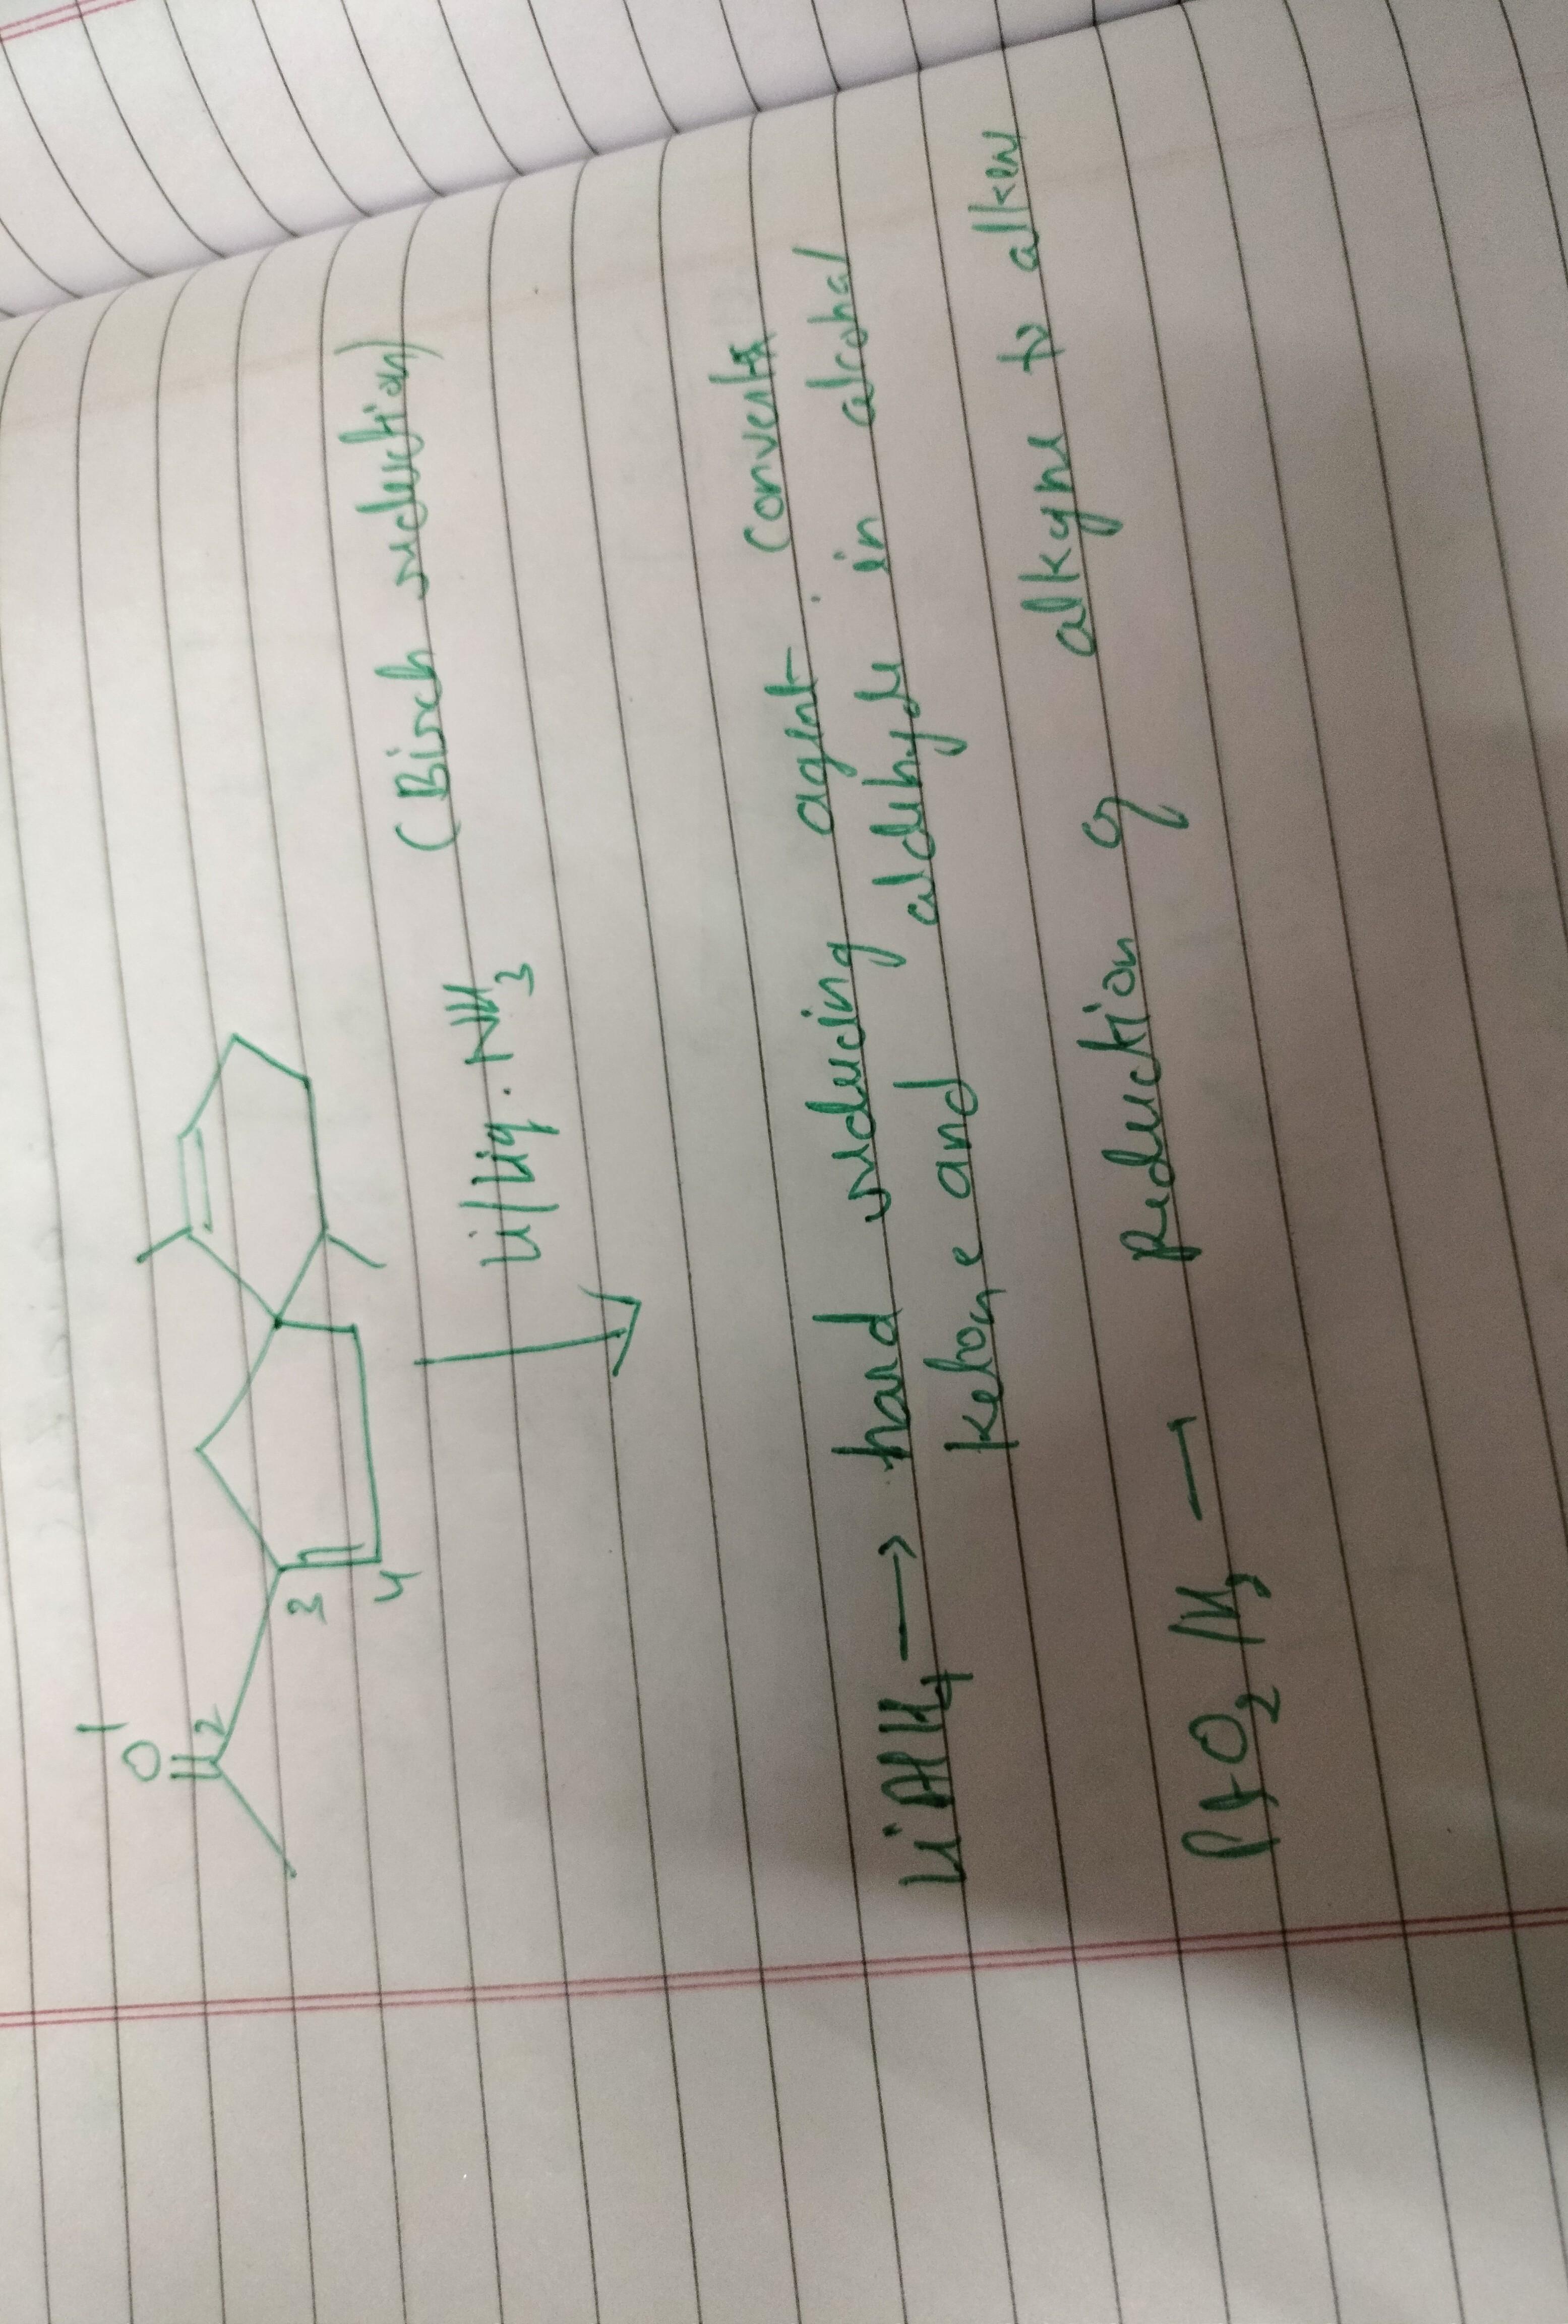 O 1
2
3
4
Li/Liq. NH3 (Birch reduction)
LiAlH4 → hard reducing agent converts
ketone and aldehyde in alcohol
PtO2/H2 — Reduction of alkyne to alken